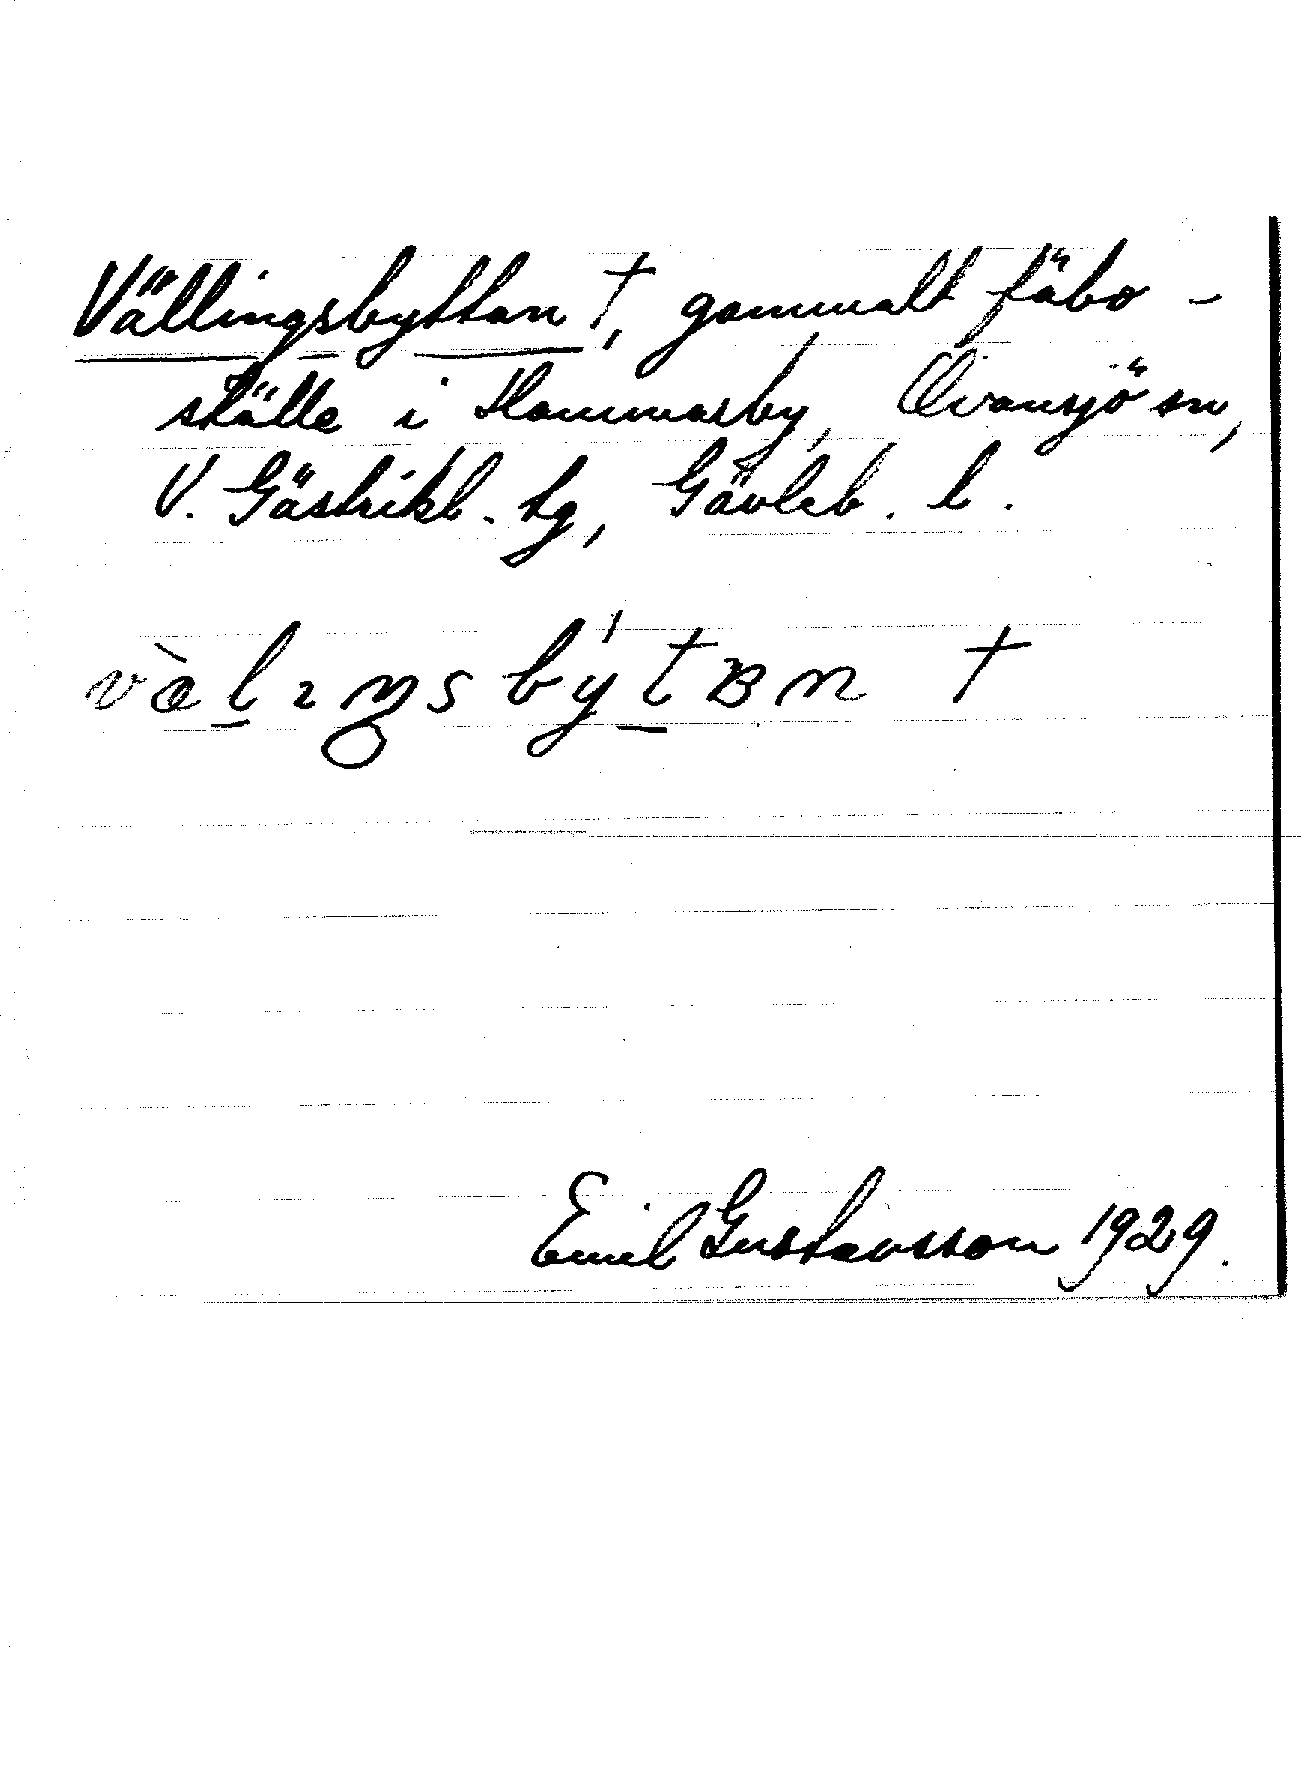 Vällingsbyttan †, gammalt fäbo-
ställe i Hammarby, Ovansjö sn,
V. Gästrikl. tg, Gävleb. l.
væ̀l̲ıŋsbýt̲ʙn †
Emil Gustavsson 1929.